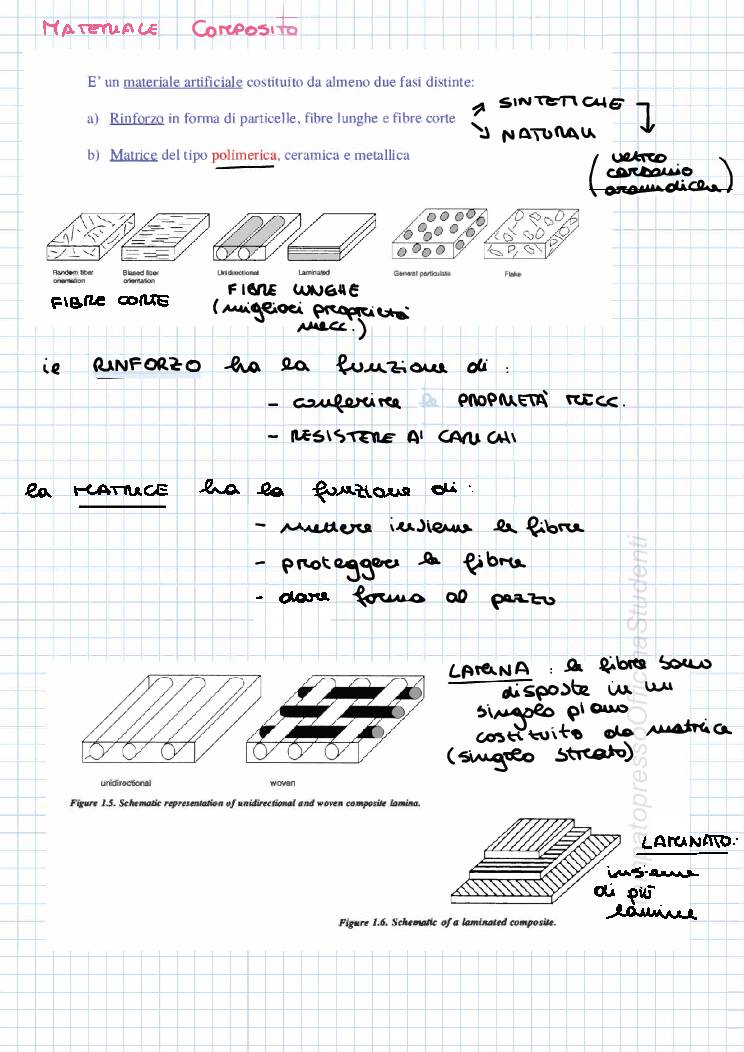 MATERIALE COMPOSITO
E' un materiale artificiale costituito da almeno due fasi distinte:
a) Rinforzo in forma di particelle, fibre lunghe e fibre corte
SINTETICHE
NATURALI
(vetro
carbonio
arammidiche)
b) Matrice del tipo polimerica, ceramica e metallica
Random fiber orientation
Biased fiber orientation
Unidirectional
Laminated
General particulate
Flake
FIBRE CORTE
FIBRE LUNGHE
(migliori proprietà
mecc.)
ie RINFORZO ha la funzione di:
- conferire le PROPRIETÀ MECC.
- RESISTERE AI CARICHI
la MATRICE ha la funzione di:
- mettere insieme le fibre
- proteggere le fibre
- dare forma al pezzo
LAMINA: le fibre sono
disposte in un
singolo piano
costituito da matrice
(singolo strato)
unidirectional
woven
Figure 1.5. Schematic representation of unidirectional and woven composite lamina.
LAMINATO:
insieme
di più
lamine
Figure 1.6. Schematic of a laminated composite.